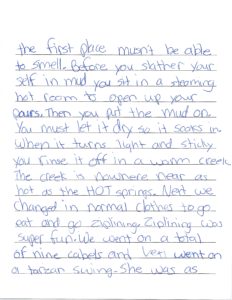 the first place musn't be able
to smell. Before you slather your
self in mud you sit in a steaming
hot room to open up your
paurs. Then you put the mud on.
You must let it dry so it soaks in.
When it turns light and sticky
you rinse it off in a warm creek.
The creek is nowhere near as
hot as the HOT springs. Next we
changed in normal clothes to go
eat and go ziplining. Ziplining was
super fun. We went on a total
of nine cabels and went on
a tarzan swing. She was as